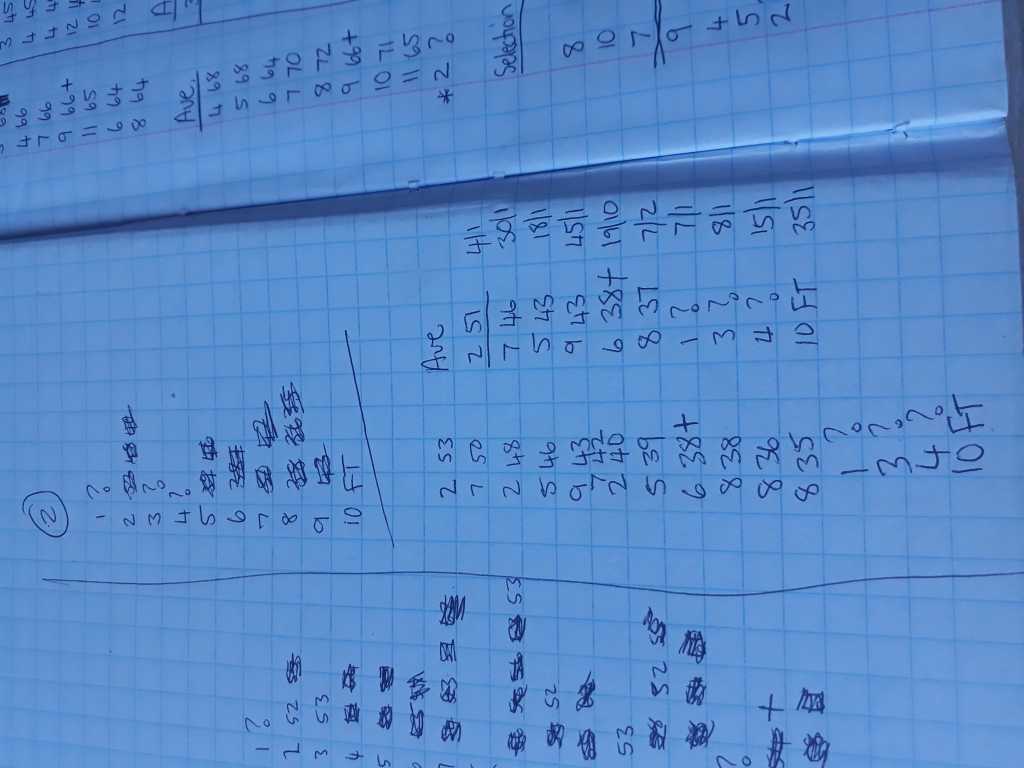 1 ?
2 52
3 53
4
5
53
52
53
52
?
+
②
1 ?
2
3 ?
4 ?
5
6
7
8
9
10 FT
2 53
7 50
2 48
5 46
9 43
7 42
2 40
5 39
6 38+
8 38
8 36
8 35
1 ?
3 ?
4 ?
10 FT
Ave
2 51 4/1
7 46 30/1
5 43 18/1
9 43 45/1
6 38+ 19/10
8 37 7/2
1 ? 7/1
3 ? 8/1
4 ? 15/1
10 FT 35/1
4 66
7 66
9 66+
11 65
6 64
8 64
Ave.
4 68
5 68
6 64
7 70
8 72
9 66+
10 71
11 65
*2 ?
3 45
4 45
12
A
Selection
8
10
7
9
4
5
2